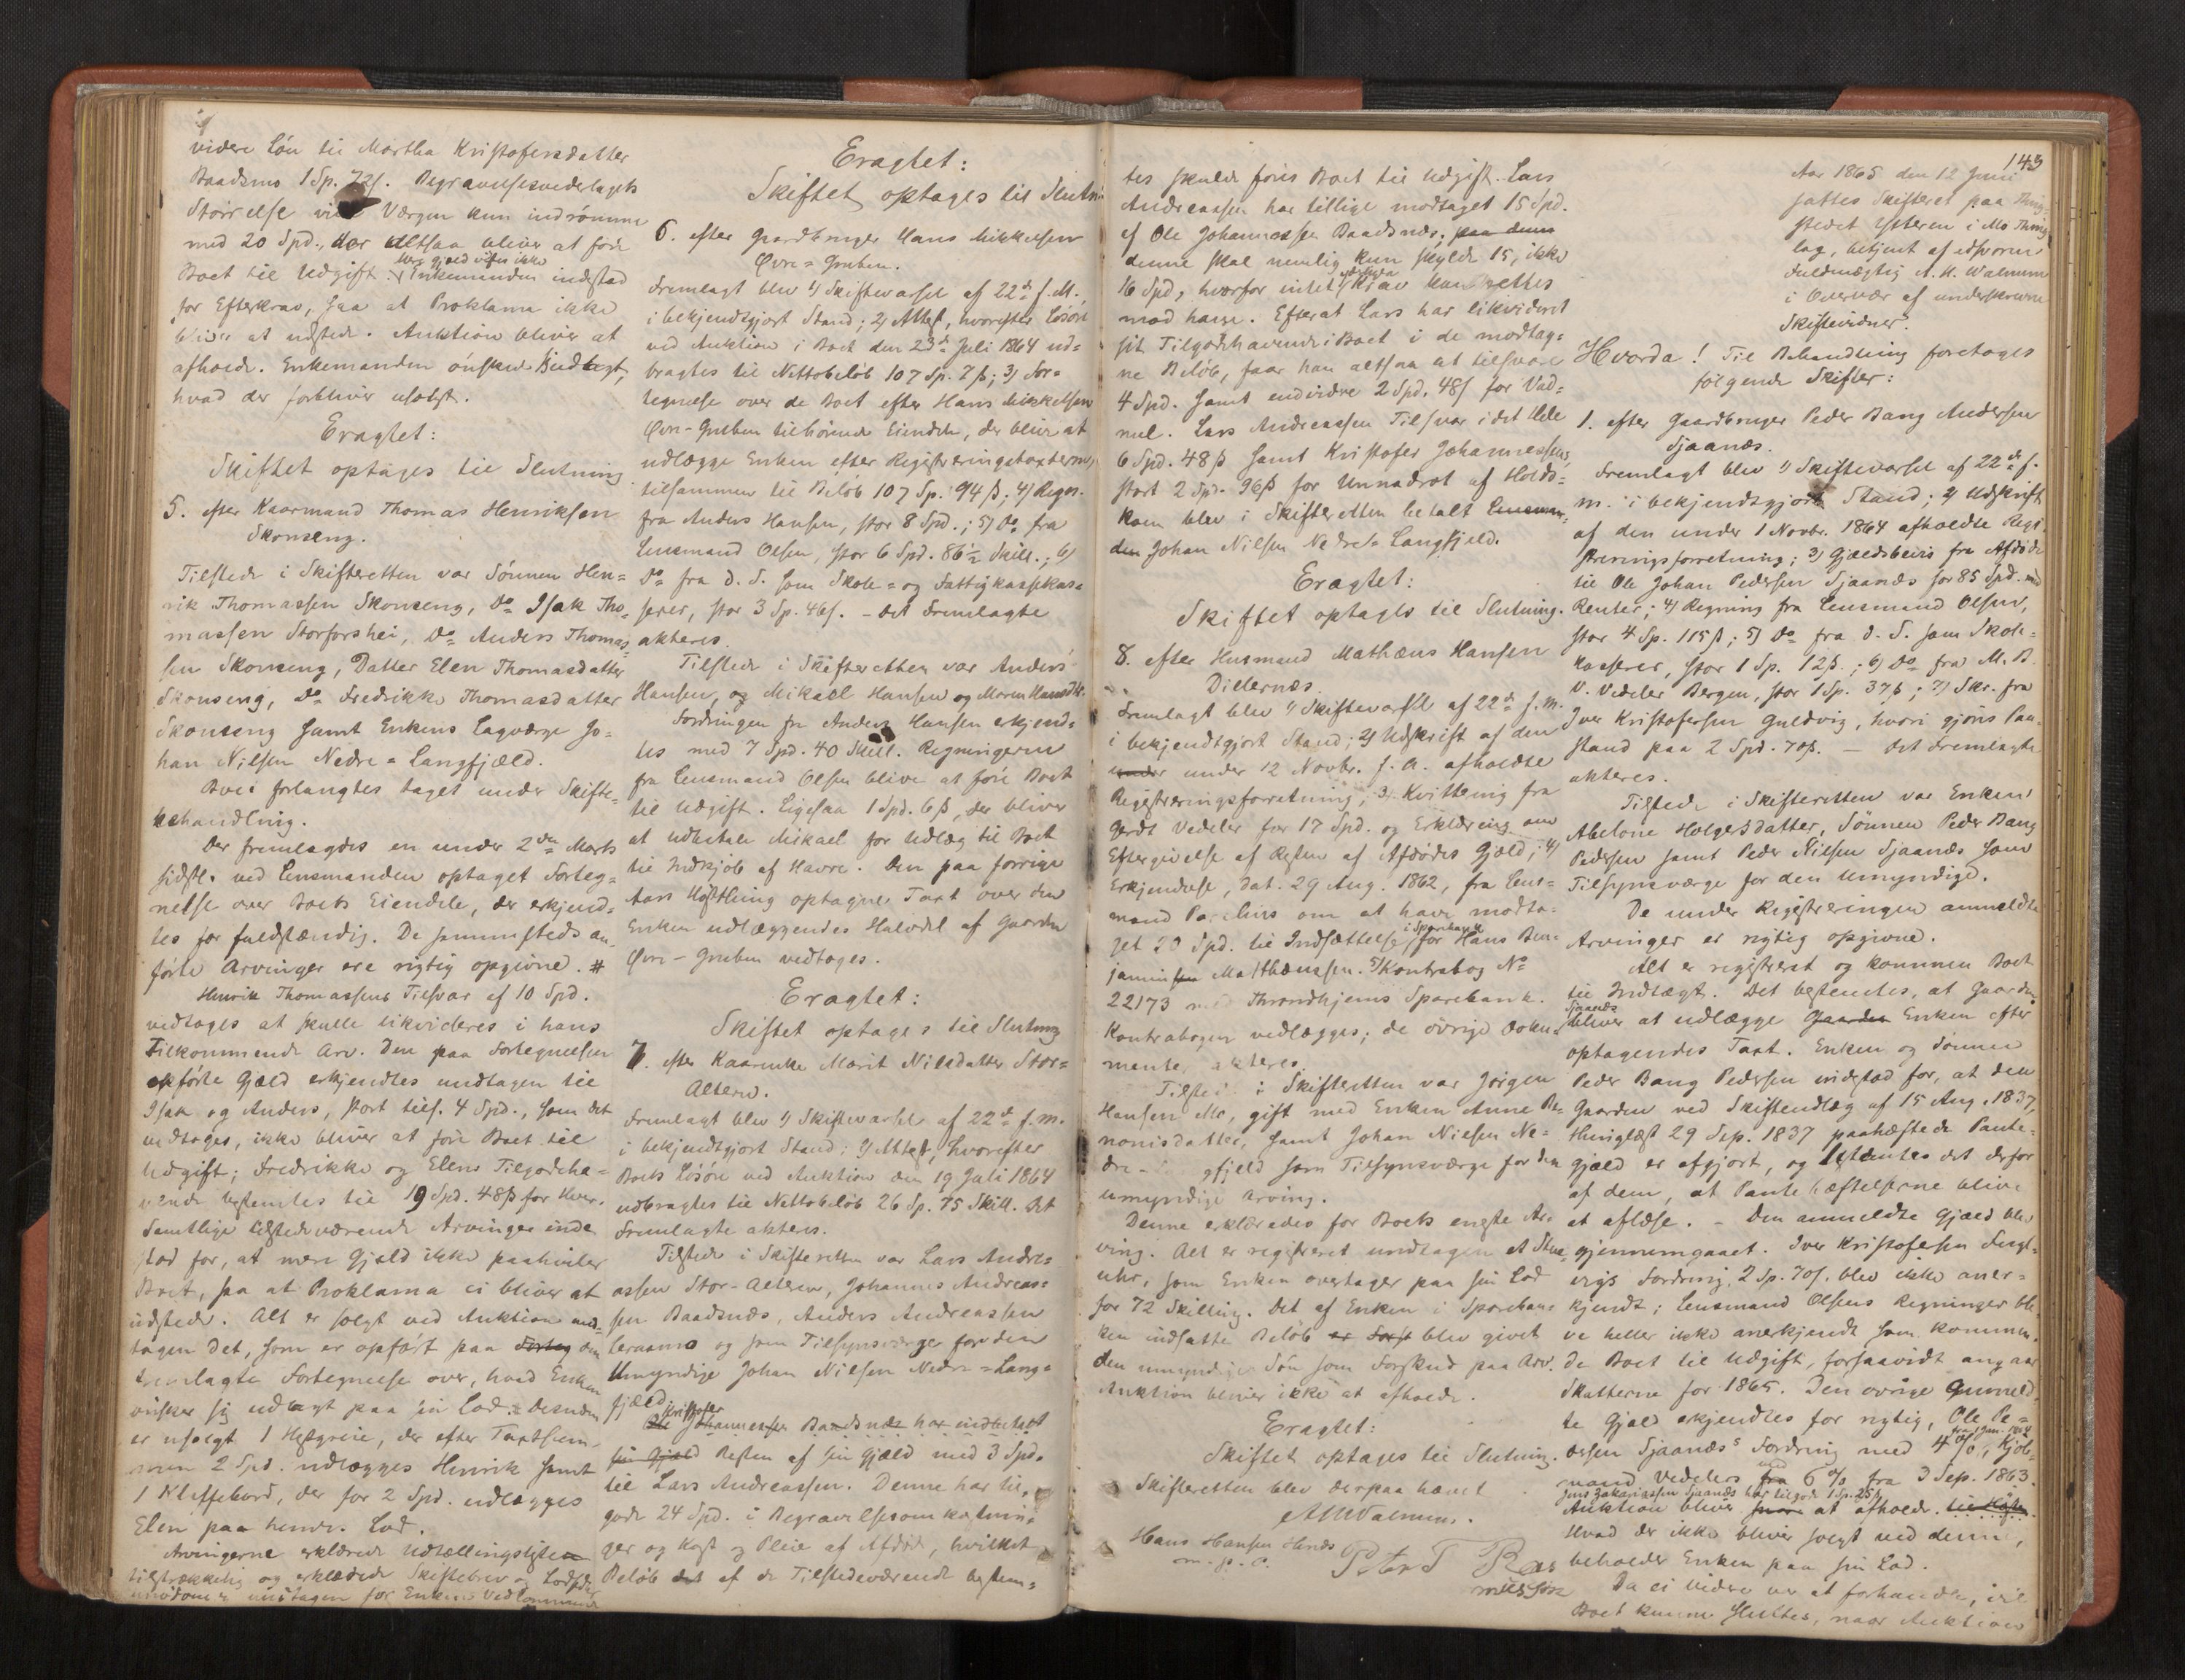 videre Lön til Martha Kristofersdatter
Baadsmo 1 Sp. 72 s. Begravelsesvederlagets
Störrelse vil Værgen kun indrömme
med 20 Spd., der altsaa bliver at före
Boet til Udgift. Mer gjæld vides ikke Enkemanden indestod
for Efterkrav, saa at Proklama ikke
bliver at udstede. Auktion bliver at
afholde. Enkemanden önsker udlagt,
hvad der forbliver usolgt.
Eragtet:
Skiftet optages til Slutning
5. efter Kaarmand Thomas Henriksen
Skonseng.
Tilstede i Skifteretten var Sönnen Hen=
rik Thomassen Skonseng, Do Isak Tho=
massen Storforshei, Do Anders Thomas=
sen Skonseng, Datter Elen Thomasdatter
Skonseng, Do Fredrikke Thomasdatter
Skonseng samt Enkens Lagværge Jo=
han Nilsen Nedre=Langfjæld.
Boet forlangtes taget under Skifte=
behandling.
Der fremlagdes en under 2den Marts
sidstl. ved Lensmanden optaget Forteg=
nelse over Boets Eiendele, der erkjend=
tes for fuldstændig. De sammesteds an=
förte Arvinger ere rigtig opgivne. #
Henrik Thomassens Tilsvar af 10 Spd.
vedtoges at skulle likvideres i hans
Tilkommende Arv. Den paa Fortegnelsen
opförte Gjæld erkjendtes undtagen til
Isak og Anders, stort tils. 4 Spd., som det
vedtoges, ikke bliver at före Boet til
Udgift; Fredrikke og Elens Tilgodeha=
vende bestemtes til 19 Spd. 48 ß for hver.
Samtlige tilstedeværende Arvinger inde
stod for, at mere Gjæld ikke paahviler
Boet, saa at Proklama ei bliver at
udstede. Alt er solgt ved Auktion und=
tagen det, som er opfört paa Forteg den
fremlagte Fortegnelse over, hvad Enken
önsker sig udlagt paa sin Lod. Desuden
er usolgt 1 Hestgreie, der efter Taxtsum=
men 2 Spd. udlægges Henrik samt
1 Klaffebord, der for 2 Spd. udlægges
Elen paa hendes Lod.
Arvingerne erklærede Udtællingslysten
tilstrækkelig og erklærede Skiftebrev og Lodsedler
undtagen for Enkens Vedkommende
Eragtet:
Skiftet optages til Slutn:
6. efter Gaardbruger Hans Mikkelsen
Övre=Gruben.
Fremlagt blev 1) Skiftevarsel af 22de f. M.,
i bekjendtgjort Stand; 2) Attest, hvorefter Lösöre
ved Auktion i Boet den 23de Juli 1864 ud=
bragtes til Nettobelöb 107 Sp. 7 ß; 3) For=
tegnelse over de Boet efter Hans Mikkelsen
Övre-Gruben tilhörende Eiendele, der bliver at
udlægge Enken efter Registreringstaxterne,
tilsammen til Belöb 107 Sp. 94 ß; 4) Regn.
fra Anders Hansen, stor 8 Spd.; 5) Do fra
Lensmand Olsen, stor 6 Spd. 86 1/2 Skill.; 6)
Do fra d. S. som Skole= og Fattigkassekas=
serer, stor 3 Sp. 46 s. - Det Fremlagte
akteres.
Tilstede i Skifteretten var Anders
Hansen, og Mikael Hansen og Maren Hansdtr.
Fordringen fra Anders Hansen erkjend=
tes med 7 Spd. 40 Skill. Regningerne
fra Lensmand Olsen blive at före Boet
til Udgift. Ligesaa 1 Spd. 6 ß, der bliver
at udbetale Mikael for Udlæg til Boet
til Indkjöb af Havre. Den paa forrige
Aars Höstthing optagne Taxt over den
Enken udlæggendes Halvdel af Gaarden
Övre-Gruben vedtoges.
Eragtet:
Skiftet optages til Slutning
7. efter Kaarenke Marit Nilsdatter Stor=
Alteren.
Fremlagt blev 1) Skiftevarsel af 22de f. M.
i bekjendtgjort Stand; 2) Attest, hvorefter
Boets Lösöre ved Auktion den 19 Juli 1864
udbragtes til Nettobelöb 26 Sp. 75 Skill. Det
Fremlagte akteres.
Tilstede i Skifteretten var Lars Andre=
assen Stor-Alteren, Johannes Andreas=
sen Baadsnæs, Anders Andreassen
Leraamo og som Tilsynsværger for den
Umyndige Johan Nilsen Nedre=Lang=
fjæld.
Ole Kristofer Johannessen Baadsnæs har indbetalt
sin Gjæld Resten af sin Gjæld med 3 Spd.
til Lars Andreassen. Denne har til=
gode 24 Spd. i Begravelsesomkostnin=
ger og Kost og Pleie af Afdöde, hvilket
Belöb det af de Tilstedeværende bestem=
tes skulde föres Boet til Udgift. Lars
Andreassen har tillige modtaget 15 Spd.
af Ole Johannessen Baadsnæs, paa denne
denne skal nemlig kun skylde 15, ikke
16 Spd, hvorfor intet yderligere Krav kan rettes
mod ham. Efterat Lars har likvideret
sit Tilgodehavende i Boet i de modtag=
ne Belöb, faar han altsaa at tilsvare
4 Spd. samt endvidere 2 Spd. 48 s for Vad=
mel. Lars Andreassen Tilsvar i det Hele
6 Spd. 48 ß samt Kristofer Johannessens,
stort 2 Spd. 96 ß for Unnadrot af Holds=
kaen blev i Skifteretten betalt Lensman=
den Johan Nilsen Nedre=Langfjeld.
Eragtet:
Skiftet optages til Slutning.
8. efter Husmand Mathæus Hansen
Dilternæs.
Fremlagt blev 1) Skiftevarsel af 22de f. M.
i bekjendtgjort Stand; 2) Udskrift af den
under under 12 Novbr. f. A. afholdte
Registreringsforretning; 3) Kvittering fra
Gerdt Vedeler for 17 Spd. og Erklæring om
Eftergivelse af Resten af Afdödes Gjæld; 4)
Erkjendelse, dat. 29 Aug. 1862, fra Lens=
mand Parelius om at have modta=
get 20 Spd. til Indsættelse i Sparebank for Hans Ben=
jamin Matthæussen. 5) Kontrabog No
22173 med Throndhjems Sparebank.
Kontrabogen vedlægges; de övrige Doku=
menter akteres.
Tilstede i Skifteretten var Jörgen
Hansen Mo, gift med Enken Anne Be=
nonisdatter, samt Johan Nielsen Ne=
dre-Langfjeld som Tilsynsværge for den
umyndige Arving.
Denne erklæredes for Boets eneste Ar=
ving. Alt er registreret undtagen et Stue
uhr, som Enken overtager paa sin Lod
for 72 Skilling. Det af Enken i Spareban=
ken indsatte Belöb er Forst blev givet
den umyndige Sön som Forskud paa Arv.
Auktion bliver ikke at afholde.
Eragtet:
Skiftet optages til Slutning.
Skifteretten blev derpaa hævet
AMWalnum.
Hans Hansen Hnæs
m. p. P.
Peter T Ras
143
Aar 1865 den 12 Juni
sattes Skifteret paa Thing=
stedet Ytteren i Mo Thing
lag, betjent af edsvoren
Fuldmægtig A. M. Walnum
i Overvær af underskrevne
Skiftevidner.
Hvorda! Til Behandling foretoges
fölgende Skifter:
1. efter Gaardbruger Peder Bang Andersen
Sjaanæs.
Fremlagt blev 1) Skiftevarsel af 22de f.
M. i bekjendtgjort Stand; 2) Udskrift
af den under 1 Novbr. 1864 afholdte Regi=
streringsforretning; 3) Gjældsbevis fra Afdöde
til Ole Johan Pedersen Sjaanæs for 85 Spd. med
Renter; 4) Regning fra Lensmand Olsen,
stor 4 Sp. 115 ß; 5) Do fra d. S. som Skole=
kasserer, stor 1 Sp. 12 ß.; 6) Do fra M. B.
V. Vedeler Bergen, stor 1 Sp. 37 ß; 7) Skr. fra
Iver Kristofersen Guldvig, hvori gjöres Paa=
stand paa 2 Spd. 70 ß. - Det Fremlagte
akteres.
Tilstede i Skifteretten var Enken
Abelone Holgersdatter, Sönnen Peder Bang
Pedersen samt Peder Nilsen Sjaanæs som
Tilsynsværge for den Umyndige.
De under Registreringen anmeldte
Arvinger er rigtig opgivne.
Alt er registreret og kommen Boet
til Indtægt. Det bestemtes, at Gaarden
Sjaanæs bliver at udlægge Gaarden Enken efter
optagendes Taxt. Enken og Sönnen
Peder Bang Pedersen indestod for, at den
Gaarden ved Skifteudlæg af 15 Aug. 1837,
thinglæst 29 Sep. 1837 paahæftede Pante=
gjæld er afgjort, og bestemtes det derfor
af dem, at Pantehæftelserne blive
at aflæse. - Den anmeldte Gjæld blev
gjennemgaaet. Iver Kristofersen Guld=
vigs Fordring, 2 Sp. 70 s. blev ikke aner=
kjendt; Lensmand Olsens Regninger ble=
ve heller ikke anerkjendt som kommen=
de Boet til Udgift, forsaavidt angaar
Skatterne for 1865. Den övrige anmeld=
te Gjæld erkjendtes for rigtig, Ole Pe=
dersen Sjaanæs's Fordring med 4 %, Kjöb=
mand Vedelers fra med 6 % fra 3 Sep. 1863.
Jens Zakariassen Sjaanæs har tilgode 1 Sp. 25 ß.
Auktion bliver at afholde. til Hösten
Hvad der ikke bliver solgt ved denne,
beholder Enken paa sin Lod.
Da ei videre var at forhandle, vil
Boet kunne sluttes, naar Auktion